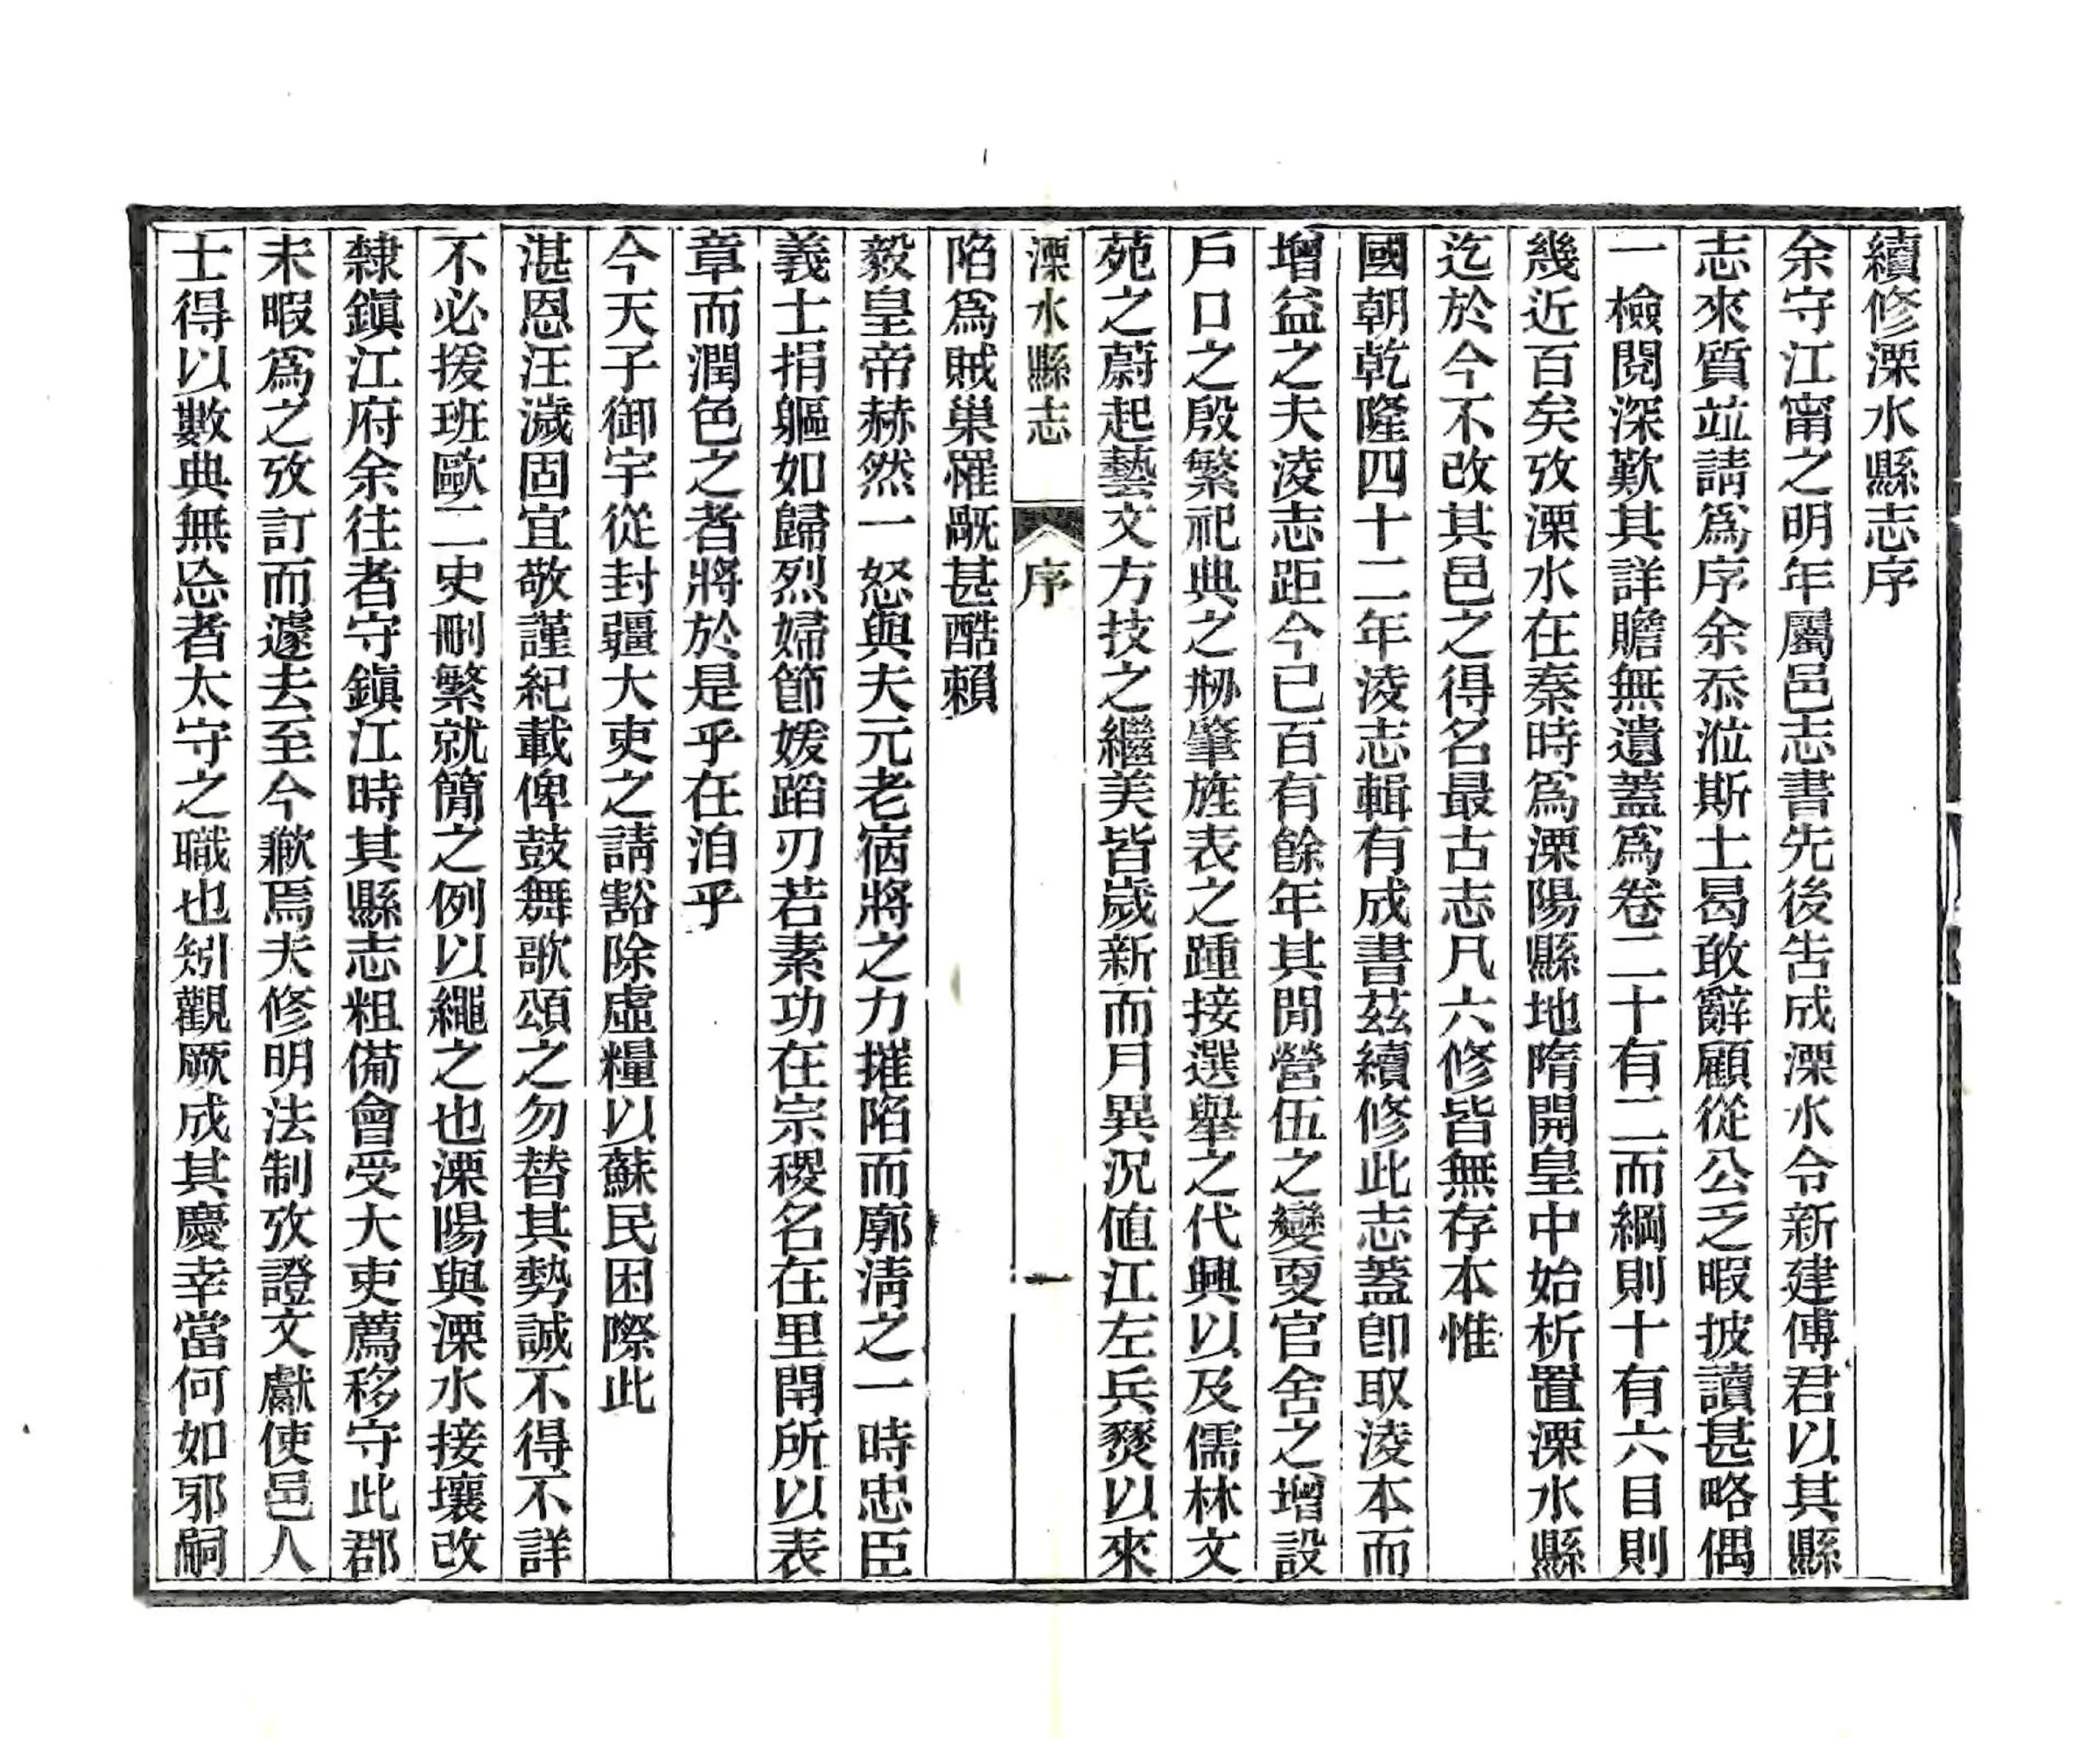 續修溧水縣志序
余守江甯之明年屬邑志書先後告成溧水令新建傅君以其縣
志來質竝請爲序余忝涖斯土曷敢辭顧從公之暇披讀甚略偶
一檢閱深歎其詳贍無遺蓋爲卷二十有二而綱則十有六目則
幾近百矣攷溧水在秦時爲溧陽縣地隋開皇中始析置溧水縣
迄於今不改其邑之得名最古志凡六修皆無存本惟
國朝乾隆四十二年淩志輯有成書茲續修此志蓋卽取淩本而
增益之夫淩志距今已百有餘年其閒營伍之變更官舍之增設
戶口之殷繁祀典之刱肇旌表之踵接選舉之代興以及儒林文
苑之蔚起藝文方技之繼美皆歲新而月異況値江左兵燹以來
溧水縣志 序 一
陷爲賊巢罹厥甚酷賴
毅皇帝赫然一怒與夫元老宿將之力摧陷而廓淸之一時忠臣
義士捐軀如歸烈婦節媛蹈刃若素功在宗稷名在里閈所以表
章而潤色之者將於是乎在洎乎
今天子御宇從封疆大吏之請豁除虛糧以蘇民困際此
湛恩汪濊固宜敬謹紀載俾鼓舞歌頌之勿替其勢誠不得不詳
不必援班歐二史刪繁就簡之例以繩之也溧陽與溧水接壤改
隸鎭江府余往者守鎭江時其縣志粗備會受大吏薦移守此郡
未暇爲之攷訂而遽去至今歉焉夫修明法制攷證文獻使邑人
士得以數典無忘者太守之職也矧觀厥成其慶幸當何如邪嗣